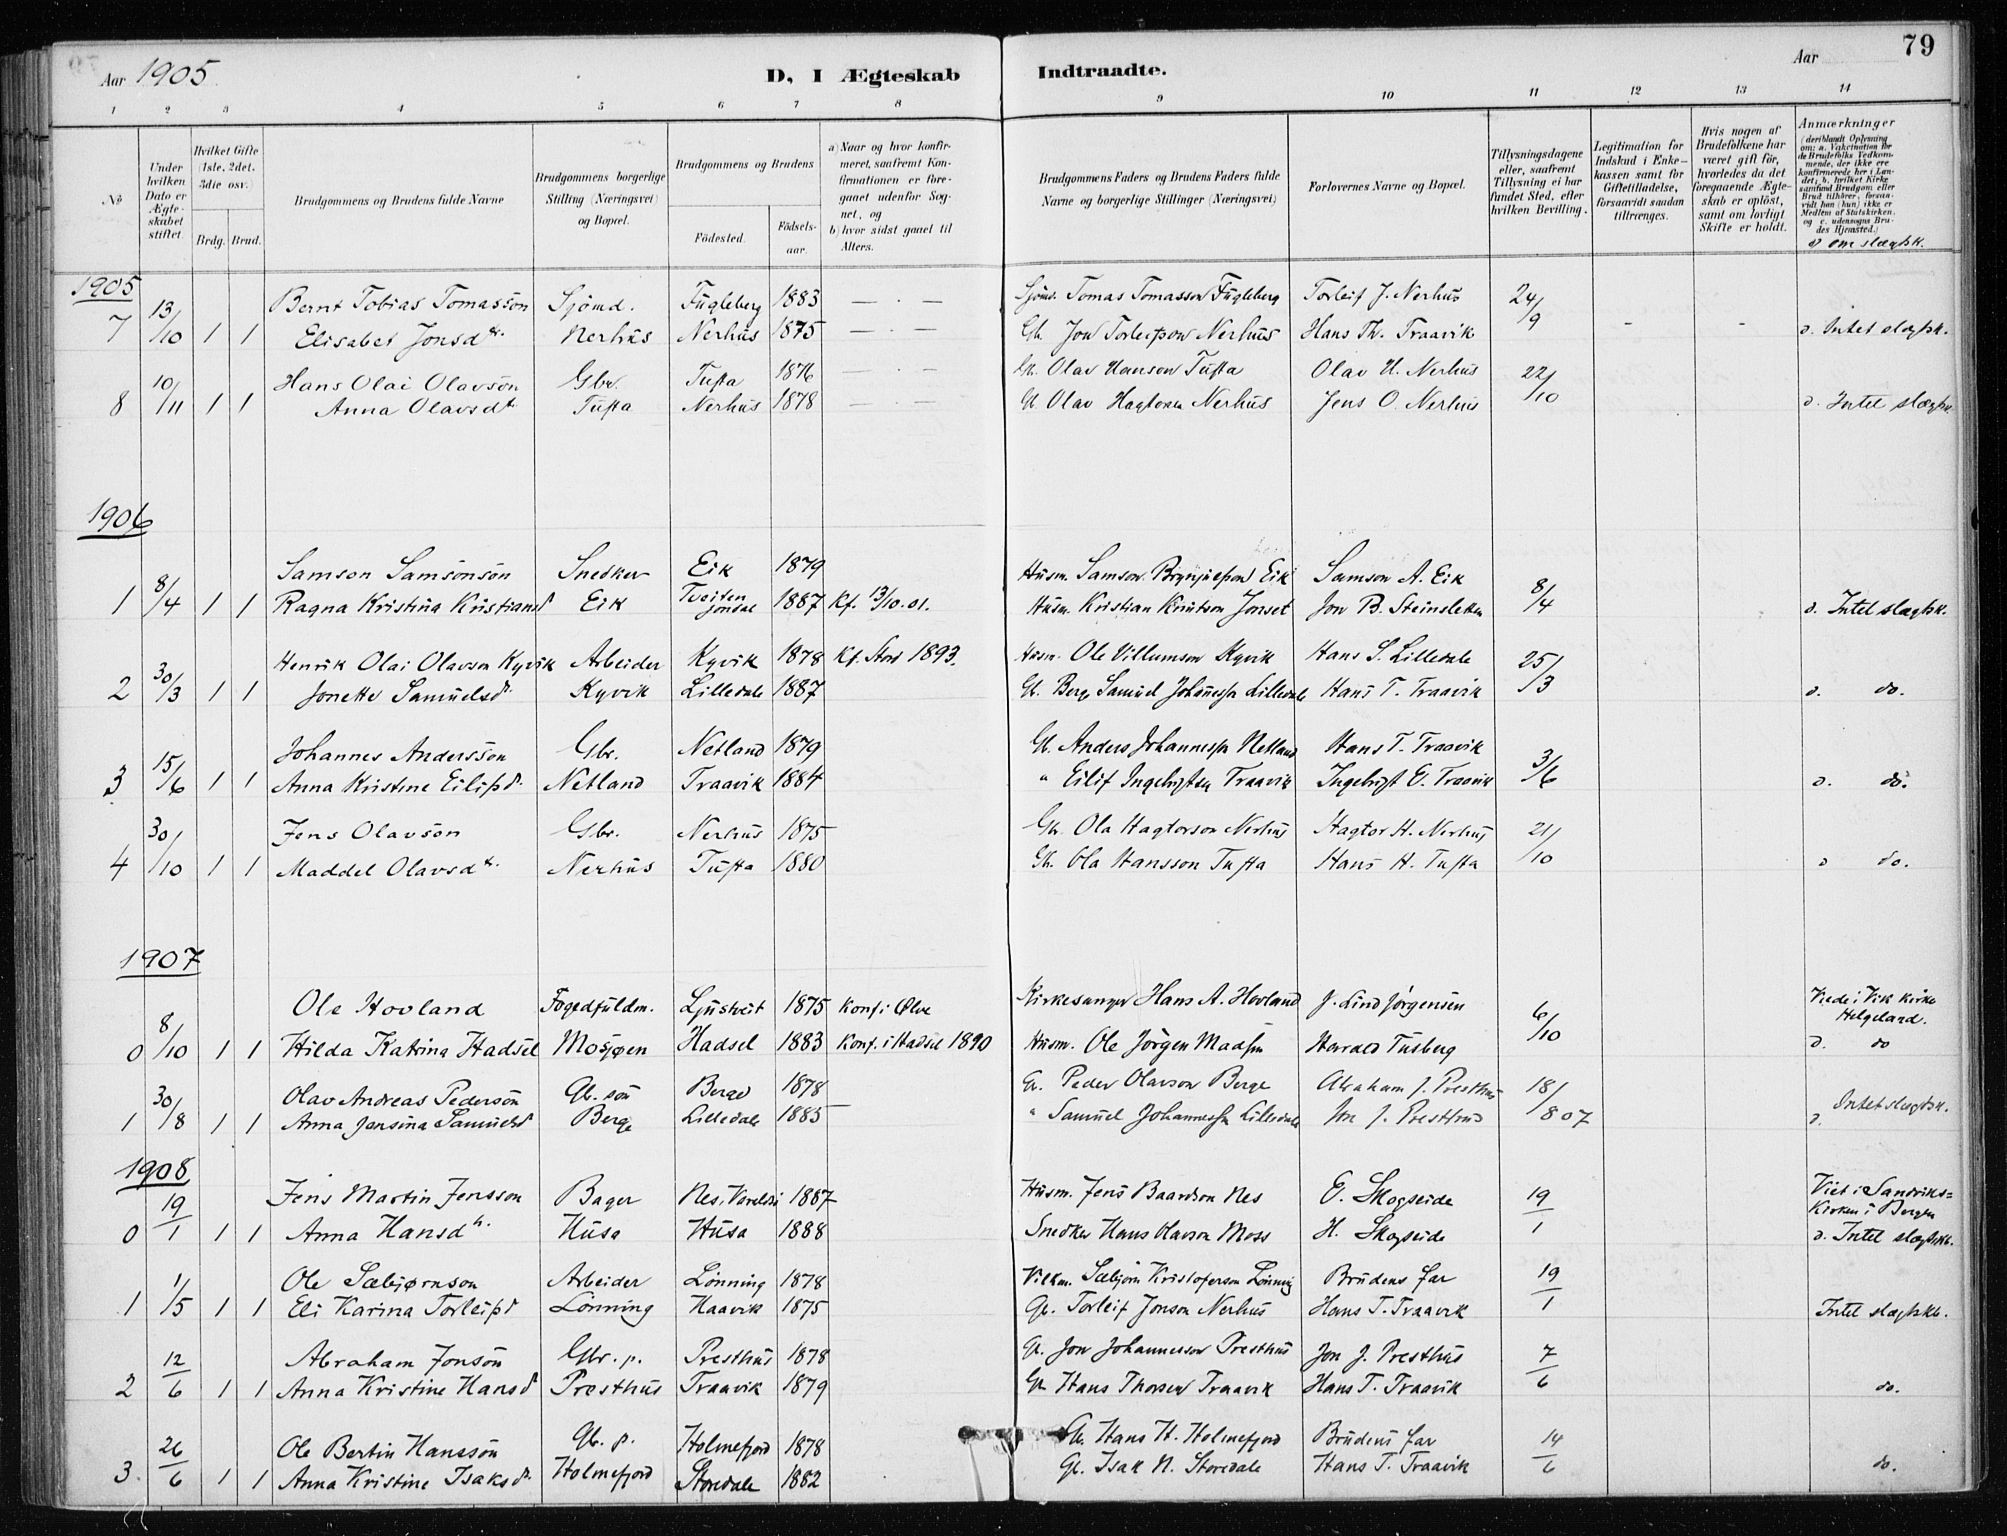 Aar 1905
D, I Ægteskab Indtraadte.
Aar
79
1 2 3 4 5 6 7 8 9 10 11 12 13 14
No
Under hvilken Dato er Ægteskabet stiftet.
Hvilket Gifte (1ste, 2det, 3die osv.)
Brdg. Brud.
Brudgommens og Brudens fulde Navne
Brudgommens borgerlige Stilling (Næringsvei) og Bopæl.
Brudgommens og Brudens
Födested.
Födselsaar.
a) Naar og hvor konfirmeret, saafremt Konfirmationen er foregaaet udenfor Sognet, og
b) hvor sidst gaaet til Alters.
Brudgommens Faders og Brudens Faders fulde Navne og borgerlige Stillinger (Næringsvei)
Forlovernes Navne og Bopæl.
Tillysningsdagene eller, saafremt Tillysning ei har fundet Sted, efter hvilken Bevilling.
Legitimation for Indskud i Enkekassen samt for Giftetilladelse, forsaavidt saadan tiltrænges.
Hvis nogen af Brudefolkene har været gift för, hvorledes da det foregaaende Ægteskab er oplöst, samt om lovligt Skifte er holdt.
Anmærkninger (deriblandt Oplysning om: a. Vakcination for de Brudefolks Vedkommende, der ikke ere konfirmerede her i Landet; b. hvilket Kirkesamfund Brudgom eller Brud tilhörer, forsaavidt han (hun) ikke er Medlem af Statskirken, og c. udensogns Brudes Hjemsted.)
d om slægtsk.
1905
13/10 Bernt Tobias Tomassön Sjömd. Fugleberg 1883 — . — Sjöm. Tomas Tomasson Fugleberg Torleif J. Nerhus 24/9
7 1 1 Elisabet Jonsdtr. Nerhus Nerhus 1875 — . — Gb. Jon Torleifson Nerhus Hans Th. Traavik - - d. Intet slægtsk.
10/11 Hans Olai Olavsön Gbr. Tufta 1876 — . — Gb. Olav Hanson Tufta Olav H. Nerhus 22/10
8 1 1 Anna Olavsdt. Tufta Nerhus 1878 Gb. Olav Hagtorsen Nerhus Jens O. Nerhus d. Intet slægtsk.
1906
Samson Samsonsön Snedker Eik 1879 Husm. Samson Brynjulfson Eik Samson A. Eik
1 8/4 1 1 Ragna Kristina Kristiansd Eik Tveiten Jondal 1887 Kf. 13/10.01. Husm. Kristian Knutson Jonset Jon B. Steinsletten 8/4 d. Intet slægtsk.
Henrik Olai Olavson Kyvik Arbeider Kyvik 1878 Kf. Stord 1893. Husm. Ole Villumson Kyvik Hans S. Lilledale 25/3
2 30/3 1 1 Jonette Samuelsd. Kyvik Lilledale 1887 Gb. Berge Samuel Johannessn Lilledale Hans T. Traavik d. do.
Johannes Andersson Gbr. Netland 1879 Gb. Anders Johannessn Netland Hans T. Traavik
3 15/6 1 1 Anna Kristine Eilifsd. Netland Traavik 1884 " Eilif Ingebrigtsen Traavik Ingebrigt E. Traavik 3/6 d. do.
30/10 Jens Olavsön Gbr. Nerhus 1875 Gb. Ola Hagtorson Nerhus Hagtor H. Nerhus 21/10
4 1 1 Maddel Olavsdtr. Nerhus Tufta 1880 Gb. Ola Hansson Tufta Hans H. Tufta d do.
1907
Ole Hovland Fogedfuldm. Ljustveit 1875 Konf. i Ølve Kirkesanger Hans A. Hovland J. Lind Jørgensen Viede i Vik kirke Helgeland.
0 8/10 1 1 Hilda Katrina Hadsel Mosjøen Hadsel 1883 Konf. i Hadsel 1890 Husm. Ole Jörgen Madsen Harald Tusberg 6/10 d. do
Olav Andreas Pedersön Gb. sön Berge 1878 Gb. Peder Olavson Berge Abraham J. Presthus 18/8 07
1 30/8 1 1 Anna Jensina Samuelsd Berge Lilledale 1885 — " Samuel Johannessn Lilledale Jon J. Presthus d. Intet slægtsk.
1908
Jens Martin Jensson Bager Nes, Varaldsö 1887 Husm. Jens Baardson Nes E. Skogseide 19/1 Viet i Sandvikskirken i Bergen
0 19/1 1 1 Anna Hansdtr. Husa Husa 1888 Snedker Hans Olavson Moss H. Skogseide d. Intet slægtskb.
Ole Sæbjørnson Arbeider Lönning 1878 Sæbjörn Kristoferson Lönning Brudens far 19/1
1 1/5 1 1 Eli Karina Torleifsd Lönning Haavik 1875 Gb. Torleif Jonson Nerhus Hans T. Traavik Intet slægtskb.
Abraham Jonsön Gbr. p. Presthus 1878 Gb. Jon Johannesson Presthus Jon J. Presthus 7/6
2 12/6 1 1 Anna Kristine Hansd Presthus Traavik 1879 Gb. Hans Thorsen Traavik Hans T. Traavik do.
Ole Bertin Hanssön Gb. p. Holmefjord 1878 Gb. Hans H. Holmefjord Brudens far 14/6
3 26/6 1 1 Anna Kristine Isaksdr. Holmefjord Storedale 1882 Gb. Isak N. Storedale Hans T. Traavik do.